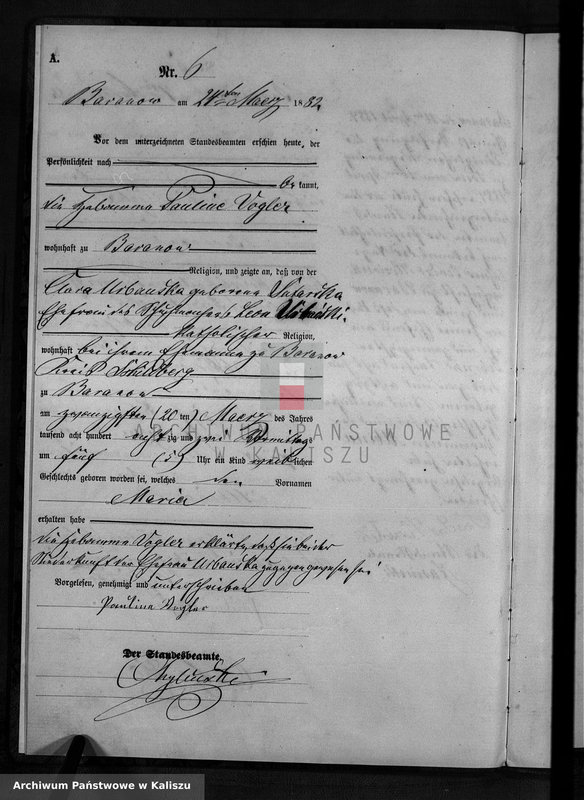 A.
Nr. 6
Baranow am 24ten Maerz 1882
Vor dem unterzeichneten Standesbeamten erschien heute, der
Persönlichkeit nach
bekannt,
die Hebamme Pauline Vogler
wohnhaft zu Baranow
Religion, und zeigte an, daß von der
Clara Urbanska geborene
Ehefrau des Schuhmachers Leon
katholischer Religion,
wohnhaft bei ihrem Ehemanne zu Baranow
Kreis Schildberg
zu Baranow
am zwanzigsten (20ten) Maerz des Jahres
tausend acht hundert achtzig und zwei Vormittags
um fünf (5) Uhr ein Kind weiblichen
Geschlechts geboren worden sei, welches den Vornamen
Maria
erhalten habe
Die Hebamme Vogler erklärte, daß sie bei der
Niederkunft der Ehefrau Urbanska zugegen gewesen sei
Vorgelesen, genehmigt und unterschrieben
Pauline Vogler
Der Standesbeamte.
ARCHIWUM PAŃSTWOWE
W KALISZU
Archiwum Państwowe w Kaliszu